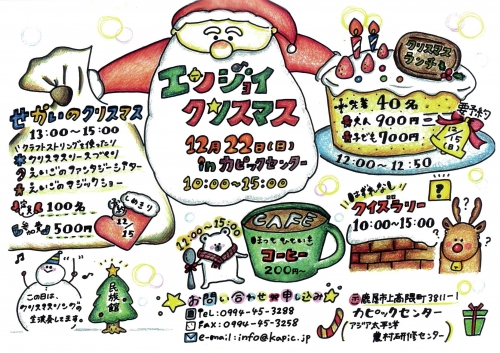 エンジョイ
クリスマス
12月22日(日)
in カピックセンター
10:00～15:00
せかいのクリスマス
13:00～15:00
クラフトストリングを使ったり
クリスマスリースづくり
えいごのファンタジーシアター
えいごのマジックショー
100名
参加費 500円
しめきり
12/15
クリスマス
ランチ
先着 40名
大人 900円
子ども 700円
要予約
12/15(日)
12:00～12:50
はずれなし
クイズラリー
10:00～15:00
?
12:00～15:00
CAFE
ほっとひといき
コーヒー
200円～
この日は、
クリスマスソングの
生演奏してます。
民族館
お問い合わせ・申し込み
Tel:0994-45-3288
Fax:0994-45-3258
e-mail:info@kapic.jp
鹿屋市上高隈町3811-1
カピックセンター
(アジア太平洋
農村研修センター)